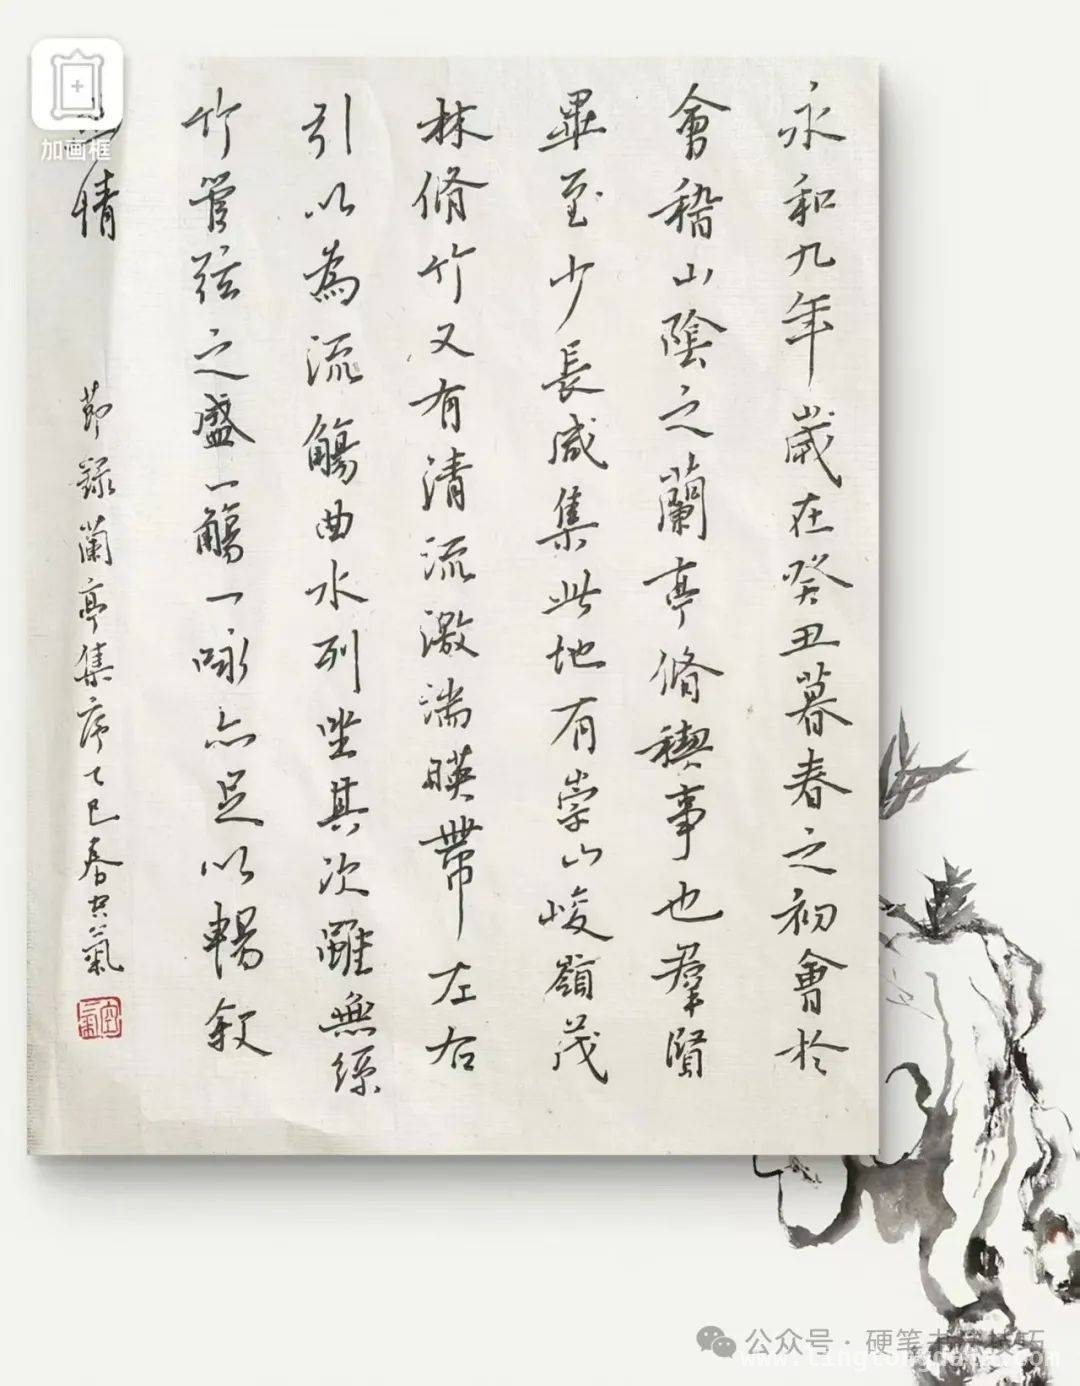 永和九年歲在癸丑暮春之初會於
會稽山陰之蘭亭脩稧事也羣賢
畢至少長咸集此地有崇山峻嶺茂
林脩竹又有清流激湍暎帶左右
引以為流觴曲水列坐其次雖無絲
竹管弦之盛一觴一咏亦足以暢叙
情
節録蘭亭集序乙巳春空氣
加画框
公众号 · 硬笔书法技巧